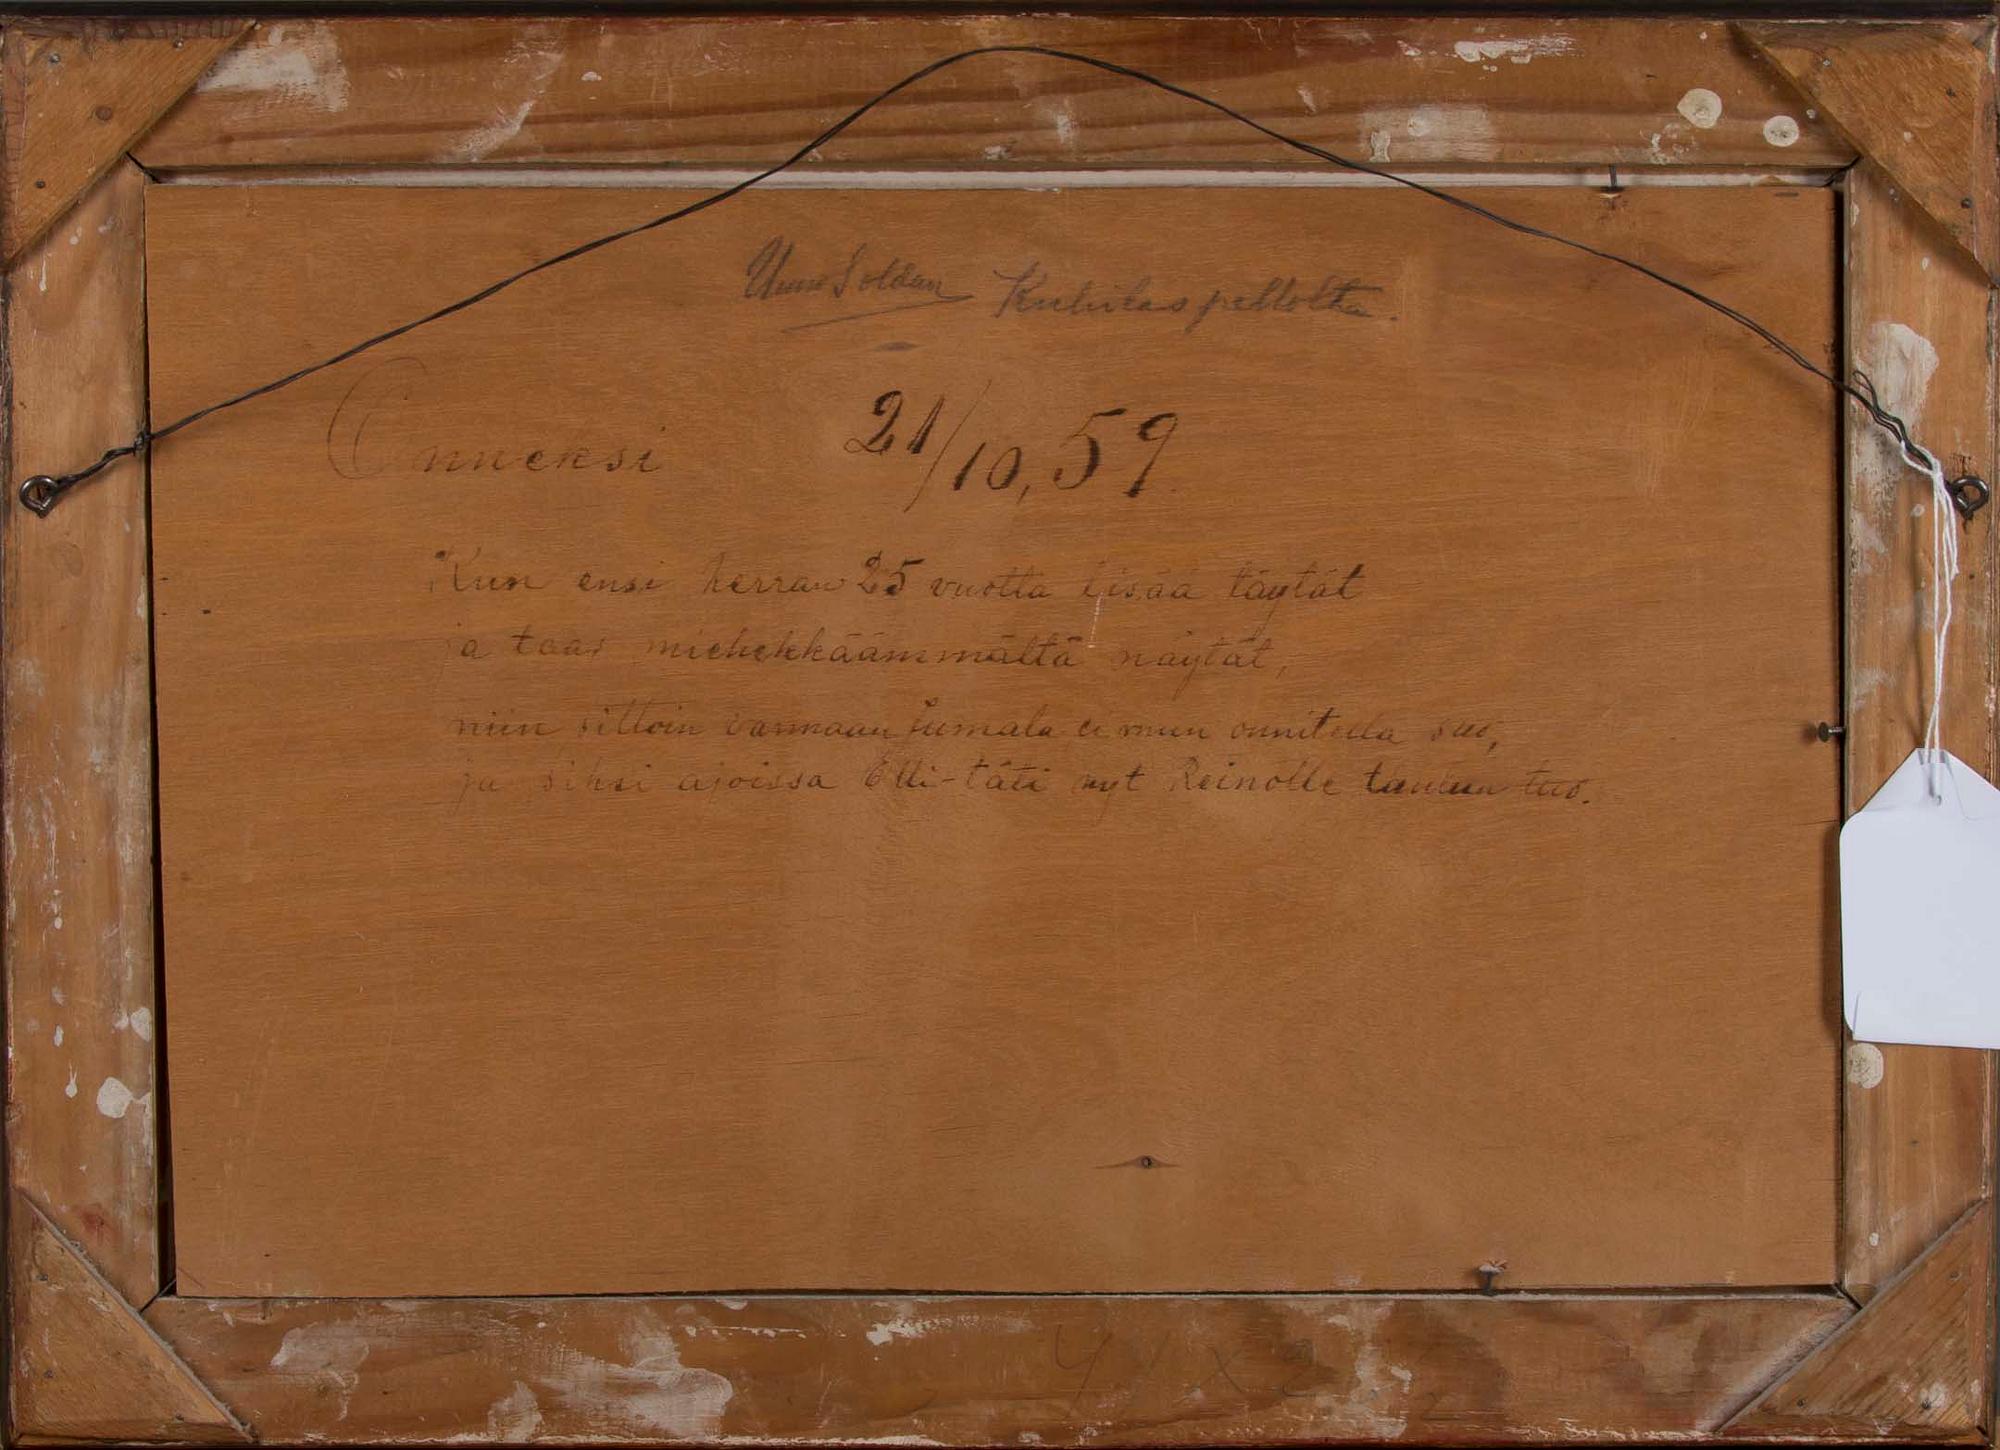 Uuno Soldan Kuhilaspellolta.
Onneksi 21/10, 59
Kun ensi kerran 25 vuotta lisää täytät
ja taas miehekkäämmältä näytät,
niin silloin varmaan Jumala ei mun onnitella suo,
ja siksi ajoissa Elli-täti nyt Reinolle taulun tuo.